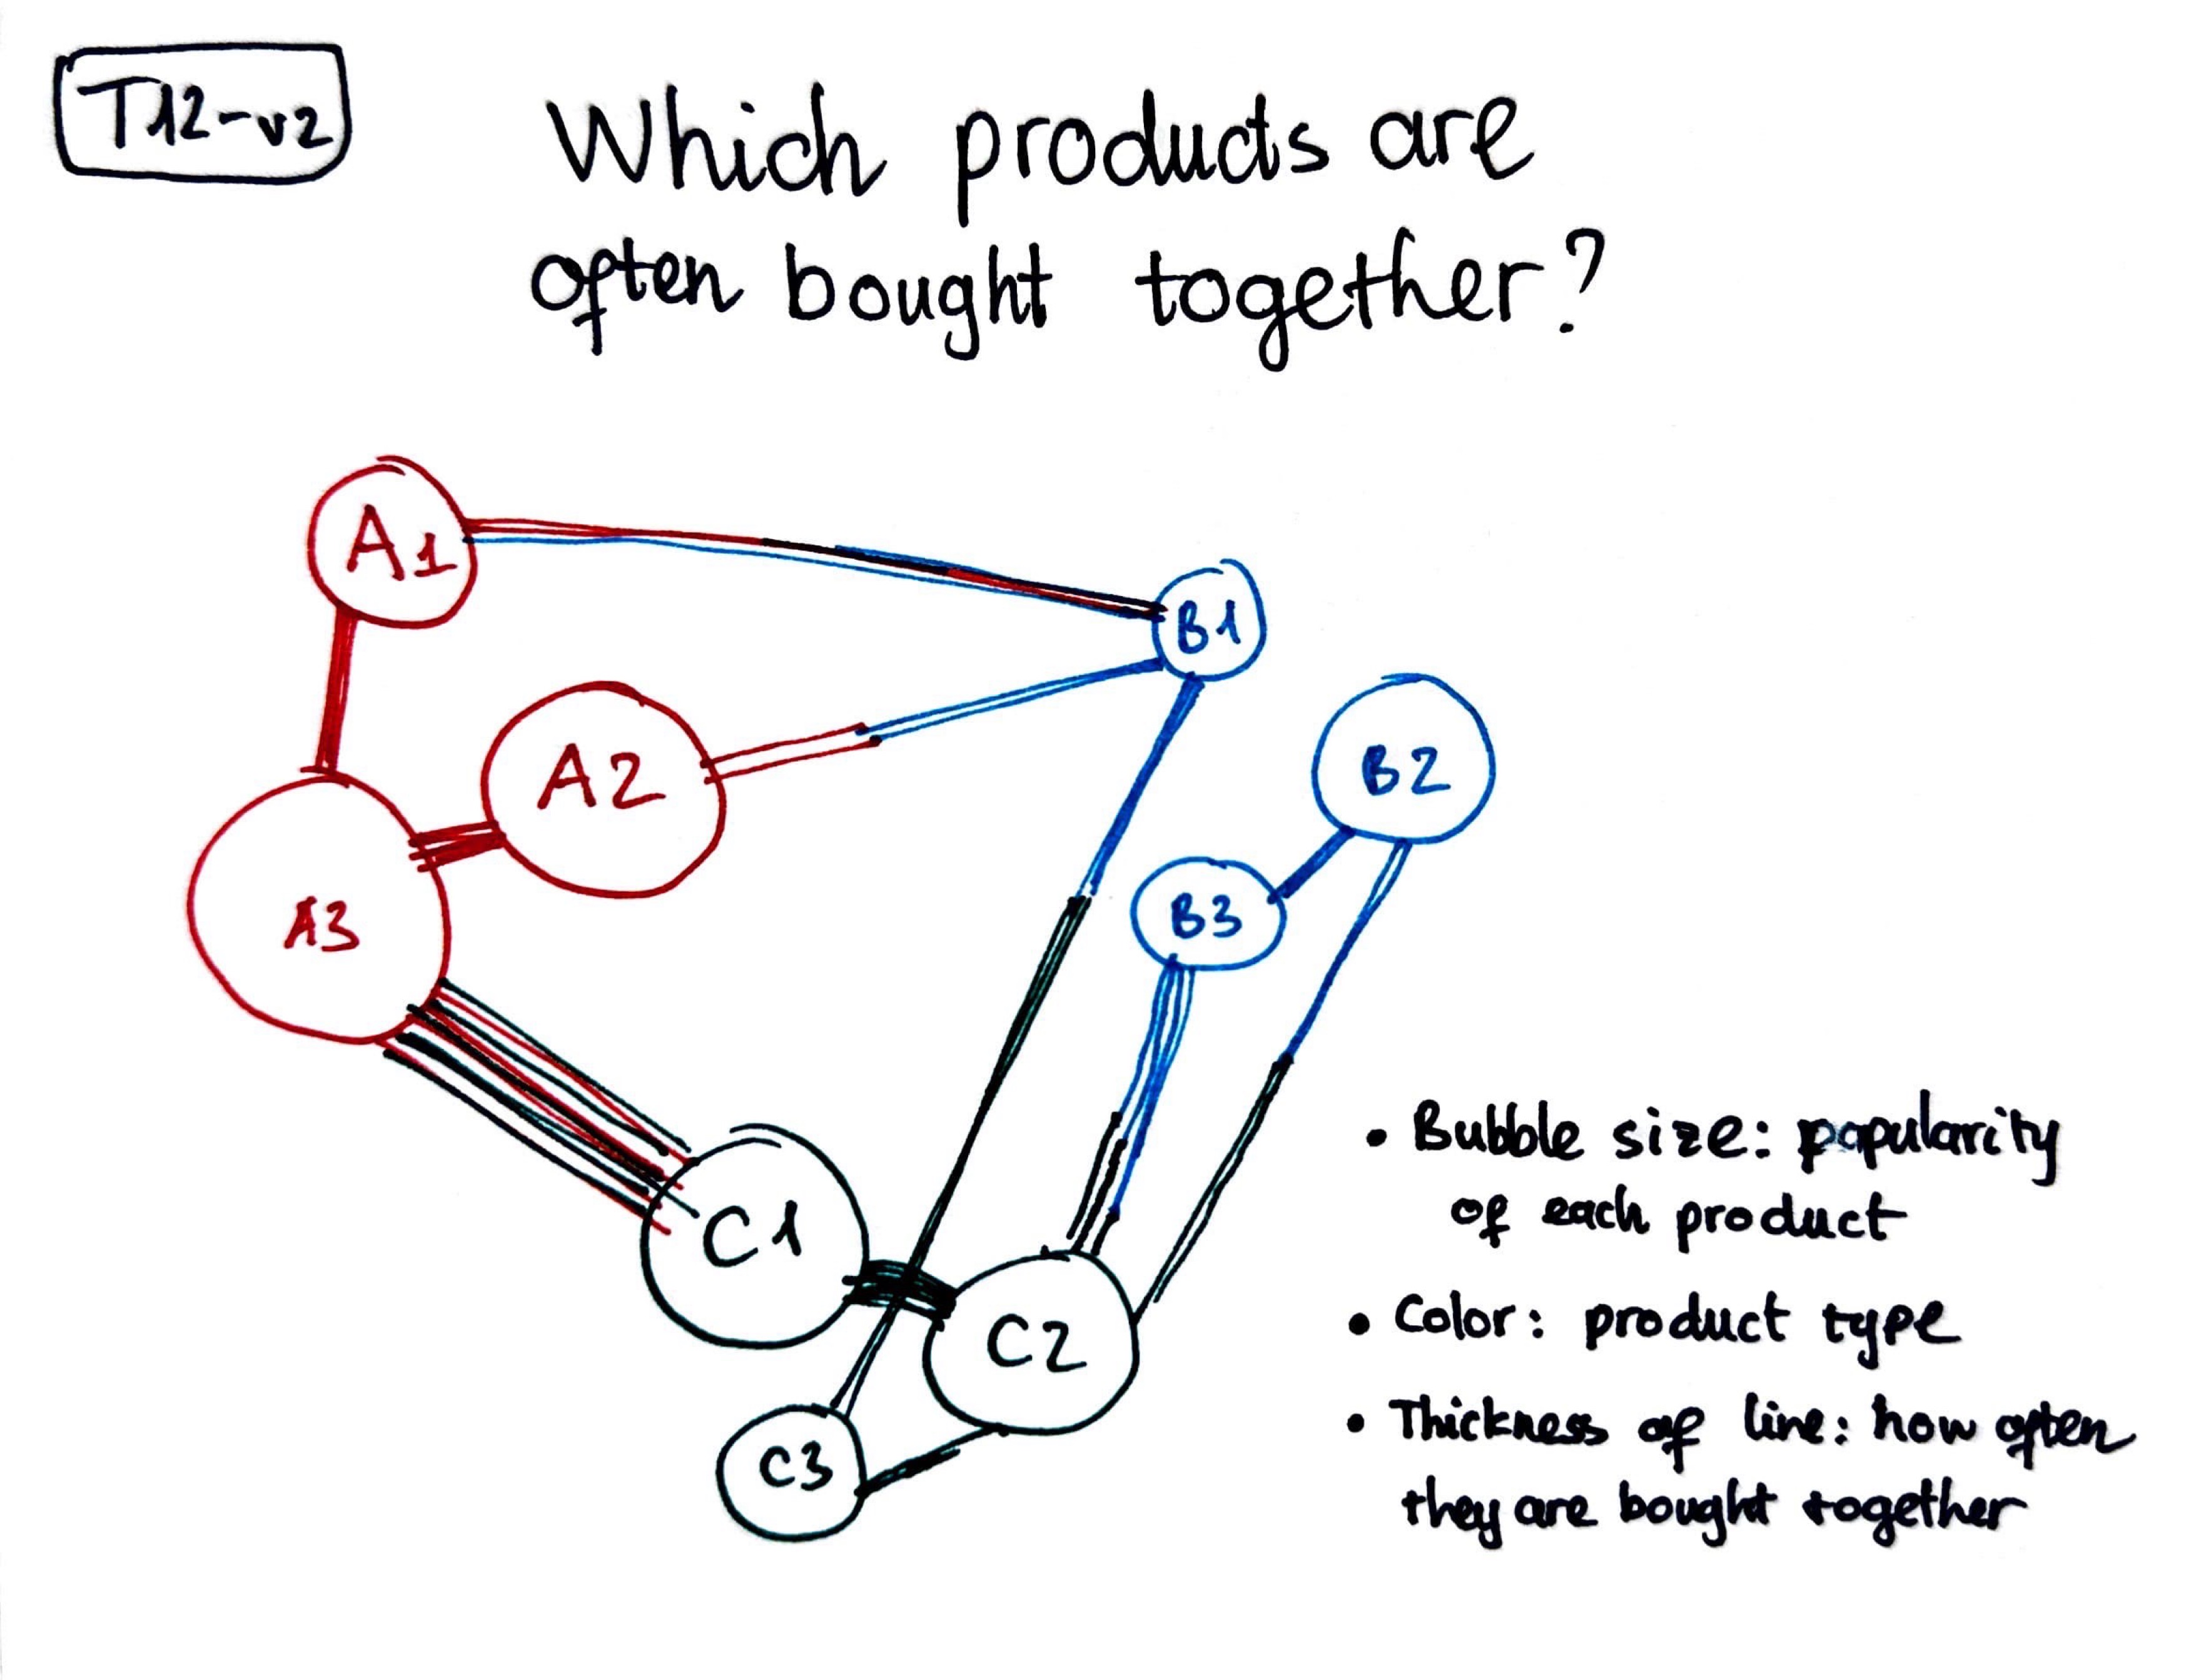 T12-v2
Which products are
often bought together?
A1
B1
A2
B2
A3
B3
C1
C2
C3
• Bubble size: popularity
of each product
• Color: product type
• Thickness of line: how often
they are bought together